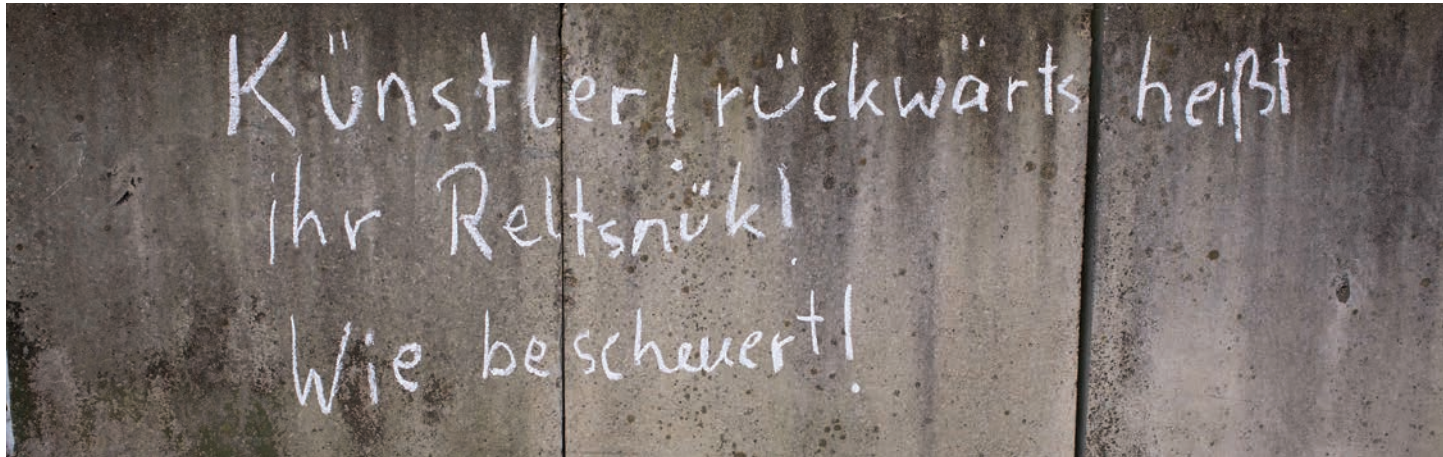 Künstler! rückwärts heißt
ihr Reltsnük!
Wie bescheuert!